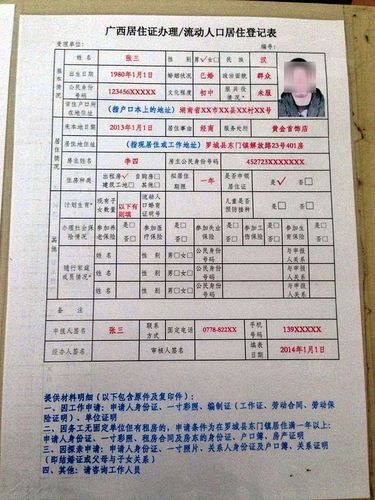 广西居住证办理/流动人口居住登记表
受理单位： 编号：
基本情况
姓名 张三 性别 男√女□ 民族 汉
出生日期 1980年1月1日 婚姻状况 已婚 政治面貌 群众
公民身份号码 123456XXXXX 文化程度 初中 服兵役情况* 未服
常住户口所在地地址 (指户口本上的地址) 湖南省XX市XX县XX村XX号
居住情况
来本地日期 2013年1月1日 居住事由 经商 服务处所 黄金首饰店
居住地址 (指现居住或工作地址) 罗城县东门镇解放路23号401房
房主姓名 李四 房主公民身份号码 452723XXXXXXX
住房种类 出租房√ 自购房□ 建筑工地□ 其他□ 拟居住期限 一年 是否申领居住证 是√ 否□
其他
计划生育* 现有子女数量 以下有则填 流动人口婚育证明号 儿童是否预防接种 是□ 否□
办理社会保险情况 参加养老保险 是□ 否□ 参加医疗保险 是□ 否□ 参加失业保险 是□ 否□ 参加工伤保险 是□ 否□ 参加生育保险 是□ 否□
随行家庭成员情况*
姓名 性别 男□女□ 公民身份号码 与申报人关系
姓名 性别 男□女□ 公民身份号码 与申报人关系
姓名 性别 男□女□ 公民身份号码 与申报人关系
备注
申报人签名 张三 联系方式 固定电话 0778-822XX 手机号码 139XXXXX
经办人签名 审核人签名 填表日期 2014年1月1日
提供材料明细（以下包含原件及复印件）：
一、因工作申请：申请人身份证、一寸彩照、编制证（工作证、劳动合同、劳动保险证明）、单位证明
二、因务工无固定单位但有租房的，申请条件为在罗城县东门镇居住满一年以上：申请人身份证、一寸彩照、租房合同及房东的身份证、户口簿、房产证明
三、因探亲申请：申请人身份证、一寸照片、关系人身份证及户口簿、关系证明（即结婚证或父母与子女关系）
四、其他：请咨询工作人员